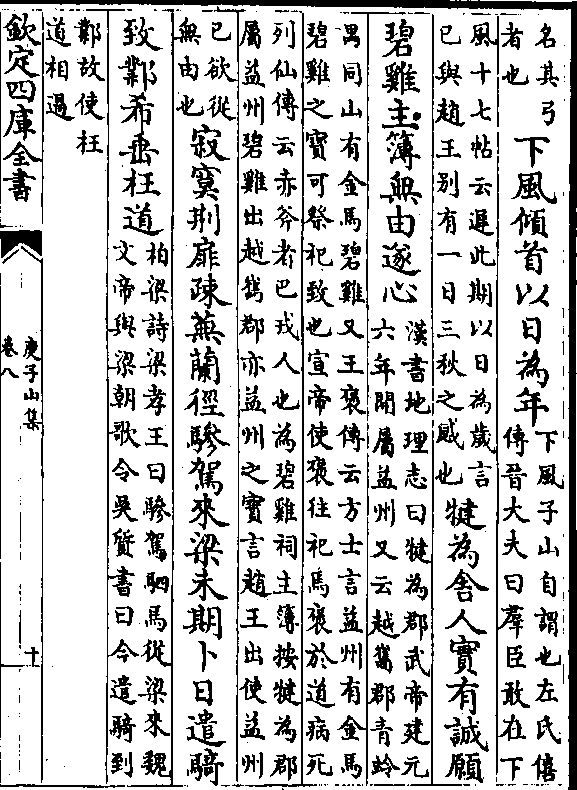 名其弓
者也
下風傾首以日為年
下風子山自謂也左氏僖
傳晉大夫曰羣臣敢在下
風十七帖云遲此期以日為歲言
已與趙王别有一日三秋之感也
犍為舍人實有誠願
碧雞主簿無由遂心
漢書地理志曰犍為郡武帝建元
六年開屬益州又云越嶲郡青蛉
禺同山有金馬碧雞又王褒傳云方士言益州有金馬
碧雞之寶可祭祀致也宣帝使褒往祀焉褒於道病死
列仙傳云赤斧者巴戎人也為碧雞祠主簿按犍為郡
屬益州碧雞出越嶲郡亦益州之寶言趙王出使益州
已欲從
無由也
寂寞荆扉疎蕪蘭徑驂駕來梁未期卜日遣騎
致鄴希垂枉道
柏梁詩梁孝王曰驂駕駟馬從梁來魏
文帝與梁朝歌令吳質書曰今遣騎到
鄴故使枉
道相過
欽定四庫全書
庾子山集
卷八
十